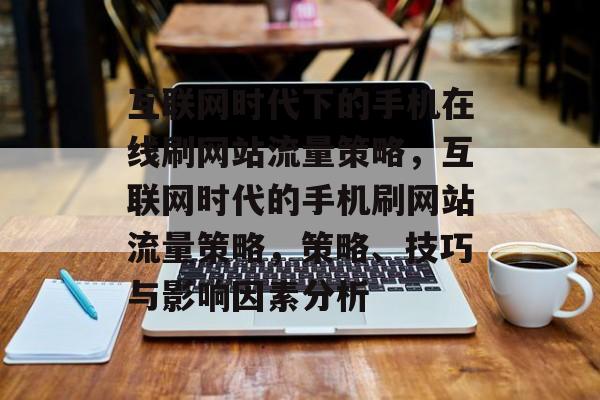 互联网时代下的手机在
线刷网站流量策略，互
联网时代的手机刷网站
流量策略，策略、技巧
与影响因素分析